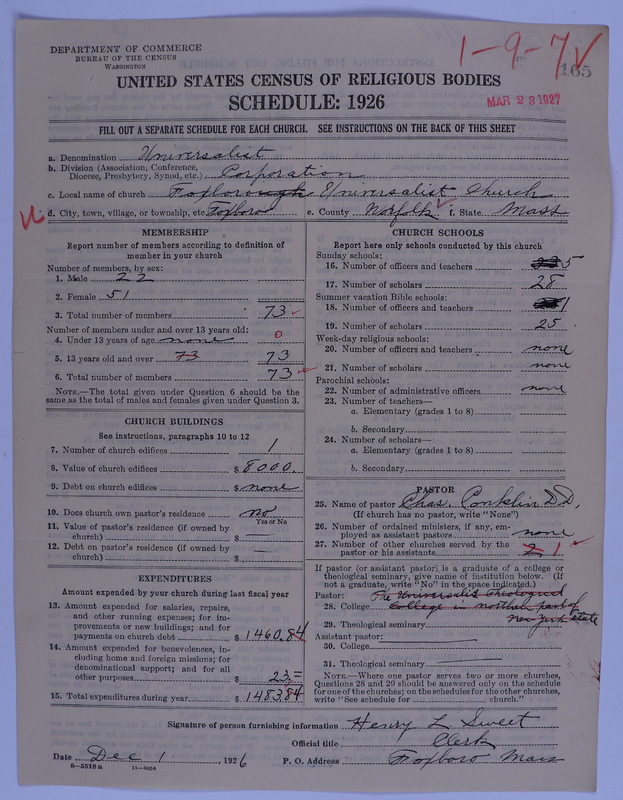 1-9-7√
165
DEPARTMENT OF COMMERCE
BUREAU OF THE CENSUS
WASHINGTON
UNITED STATES CENSUS OF RELIGIOUS BODIES
SCHEDULE: 1926
MAR 23 1927
FILL OUT A SEPARATE SCHEDULE FOR EACH CHURCH. SEE INSTRUCTIONS ON THE BACK OF THIS SHEET
a. Denomination Universalist
b. Division (Association, Conference, Diocese, Presbytery, Synod, etc.) Corporation
c. Local name of church Foxborough Universalist Church
d. City, town, village, or township, etc. Foxboro e. County Norfolk f. State Mass
MEMBERSHIP
Report number of members according to definition of
member in your church
Number of members, by sex:
1. Male 22
2. Female 51
3. Total number of members 73
Number of members under and over 13 years old:
4. Under 13 years of age none 0
5. 13 years old and over 73 73
6. Total number of members 73
NOTE.—The total given under Question 6 should be
same as the total of males and females given under Question 3.
CHURCH BUILDINGS
See instructions, paragraphs 10 to 12
7. Number of church edifices 1
8. Value of church edifices $ 8000.
9. Debt on church edifices $ none
10. Does church own pastor's residence no
Yes or No
11. Value of pastor's residence (if owned by
church) $ —
12. Debt on pastor's residence (if owned by
church) $ —
EXPENDITURES
Amount expended by your church during last fiscal year
13. Amount expended for salaries, repairs,
and other running expenses; for im-
provements or new buildings; and for
payments on church debt $ 1460.84
14. Amount expended for benevolences, in-
cluding home and foreign missions; for
denominational support; and for all
other purposes $ 23.=
15. Total expenditures during year $ 1483.84
CHURCH SCHOOLS
Report here only schools conducted by this church
Sunday schools:
16. Number of officers and teachers 5
17. Number of scholars 28
Summer vacation Bible schools:
18. Number of officers and teachers 1
19. Number of scholars 25
Week-day religious schools:
20. Number of officers and teachers none
21. Number of scholars none
Parochial schools:
22. Number of administrative officers none
23. Number of teachers—
a. Elementary (grades 1 to 8)
b. Secondary
24. Number of scholars—
a. Elementary (grades 1 to 8)
b. Secondary
PASTOR
25. Name of pastor Chas. Conklin D.D.
(If church has no pastor, write "None")
26. Number of ordained ministers, if any, em-
ployed as assistant pastors none
27. Number of other churches served by the
pastor or his assistants 2 1
If pastor (or assistant pastor) is a graduate of a college or
theological seminary, give name of institution below. (If
not a graduate, write "No" in the space indicated.)
Pastor: The Universalist Theological
28. College College in northern part of
29. Theological seminary New York State
Assistant pastor:
30. College
31. Theological seminary
NOTE.—Where one pastor serves two or more churches,
Questions 28 and 29 should be answered only on the schedule
for one of the churches; on the schedules for the other churches,
write "See schedule for church."
Signature of person furnishing information Henry L Sweet
Official title Clerk
Date Dec 1, 1926 P. O. Address Foxboro Mass
8-5518 a 11-9054